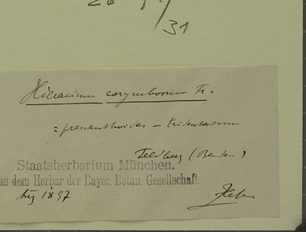 26
31
Hieracium corymbosum Fr.
= prenanthoides - tridentatum
Feldberg (Baden)
Staatsherbarium München.
aus dem Herbar der Bayer. Botan. Gesellschaft.
Aug 1897